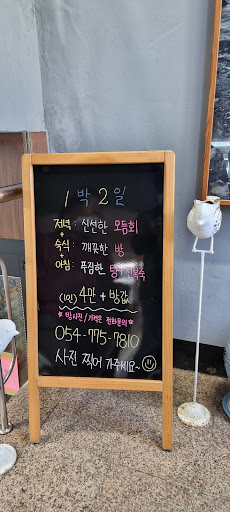 1박 2일
저녁 : 신선한 모듬회
+
숙식 : 깨끗한 방
+
아침 : 푸짐한
(1인) 4만 + 방값
* 방사진/가격은 전화문의 *
054-775-7810
사진 찍어 가주세요~